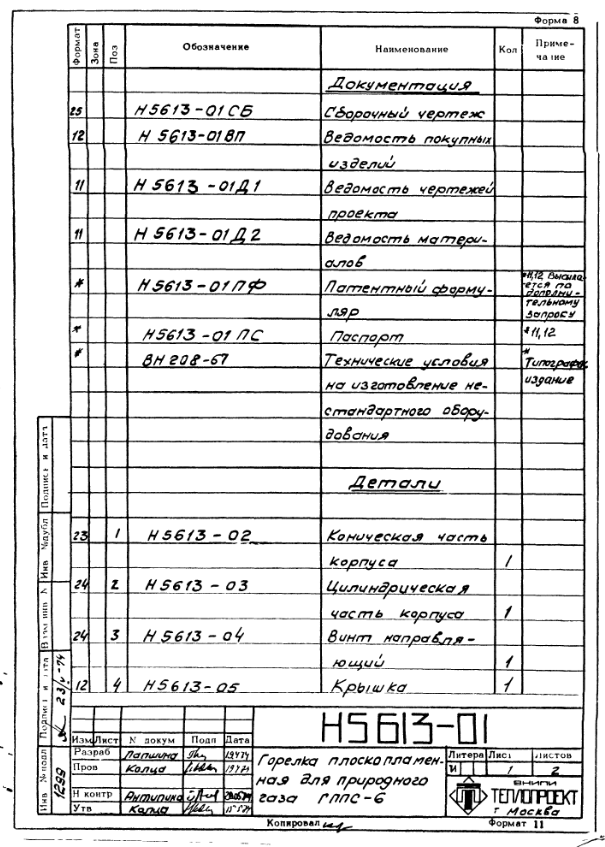 Форма 8
Формат Зона Поз Обозначение Наименование Кол Приме-
чание
Документация
25 Н5613-01СБ Сборочный чертеж
12 Н 5613-01ВП Ведомость покупных
изделий
11 Н 5613-01Д1 Ведомость чертежей
проекта
11 Н 5613-01Д2 Ведомость матери-
алов
* Н5613-01ПФ Патентный форму-
ляр
*11,12 Высыла-
ется по
дополни-
тельному
запросу
* Н5613-01 ПС Паспорт *11,12
* ВН 208-67 Технические условия
на изготовление не-
стандартного обору-
дования
* Типограф.
издание
Детали
23 1 Н5613-02 Коническая часть
корпуса 1
24 2 Н5613-03 Цилиндрическая
часть корпуса 1
24 3 Н5613-04 Винт направля-
ющий 1
12 4 Н5613-05 Крышка 1
Подпись и дата
Инв №дубл
Взам инв N
Подпись и дата
Инв №подл
1299
Н5613-01
Изм Лист N докум Подп Дата
Разраб Лапшина
Пров
Н контр Антипина
Утв
Горелка плоскопламен-
ная для природного
газа ГППС-6
Литера Лист Листов
И 1 2
ВНИПИ
ТЕПЛОПРОЕКТ
г Москва
Копировал
Формат 11